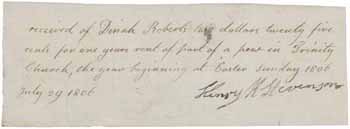 received of Dinah Roberts two dollars twenty five
cents for one years rent of part of a pew in Trinity
Church, the year beginning at Easter Sunday 1806
July 29 1806
Henry K Stevenson